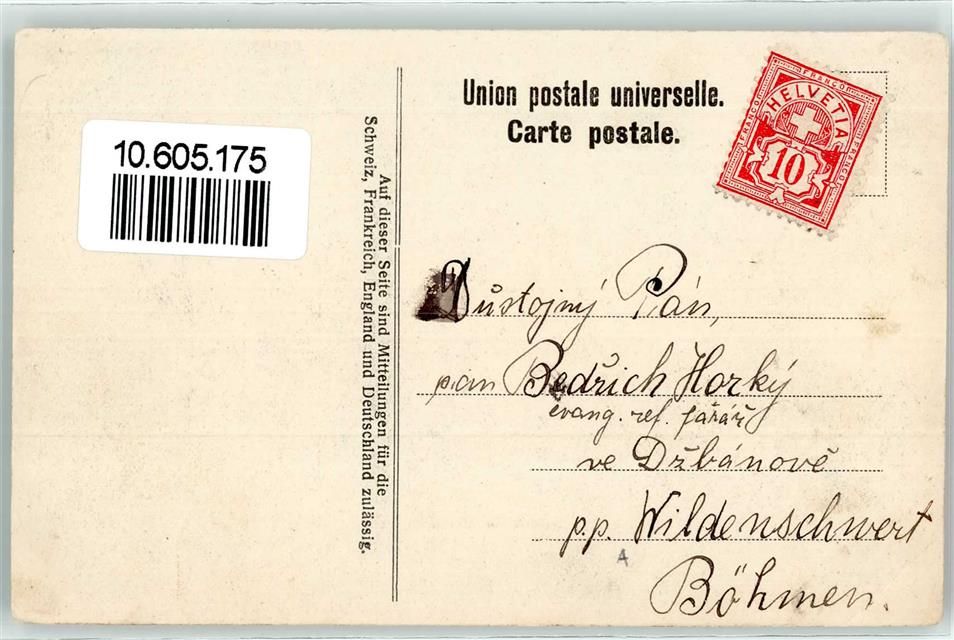 Union postale universelle.
Carte postale.
FRANCO
FRANCO
FRANCO
HELVETIA
10
10.605.175
Auf dieser Seite sind Mitteilungen für die
Schweiz, Frankreich, England und Deutschland zulässig.
Důstojný Pán,
pan Bedřich Horký
evang. ref. farář
ve Džbánově
p.p. Wildenschwert
A
Böhmen.